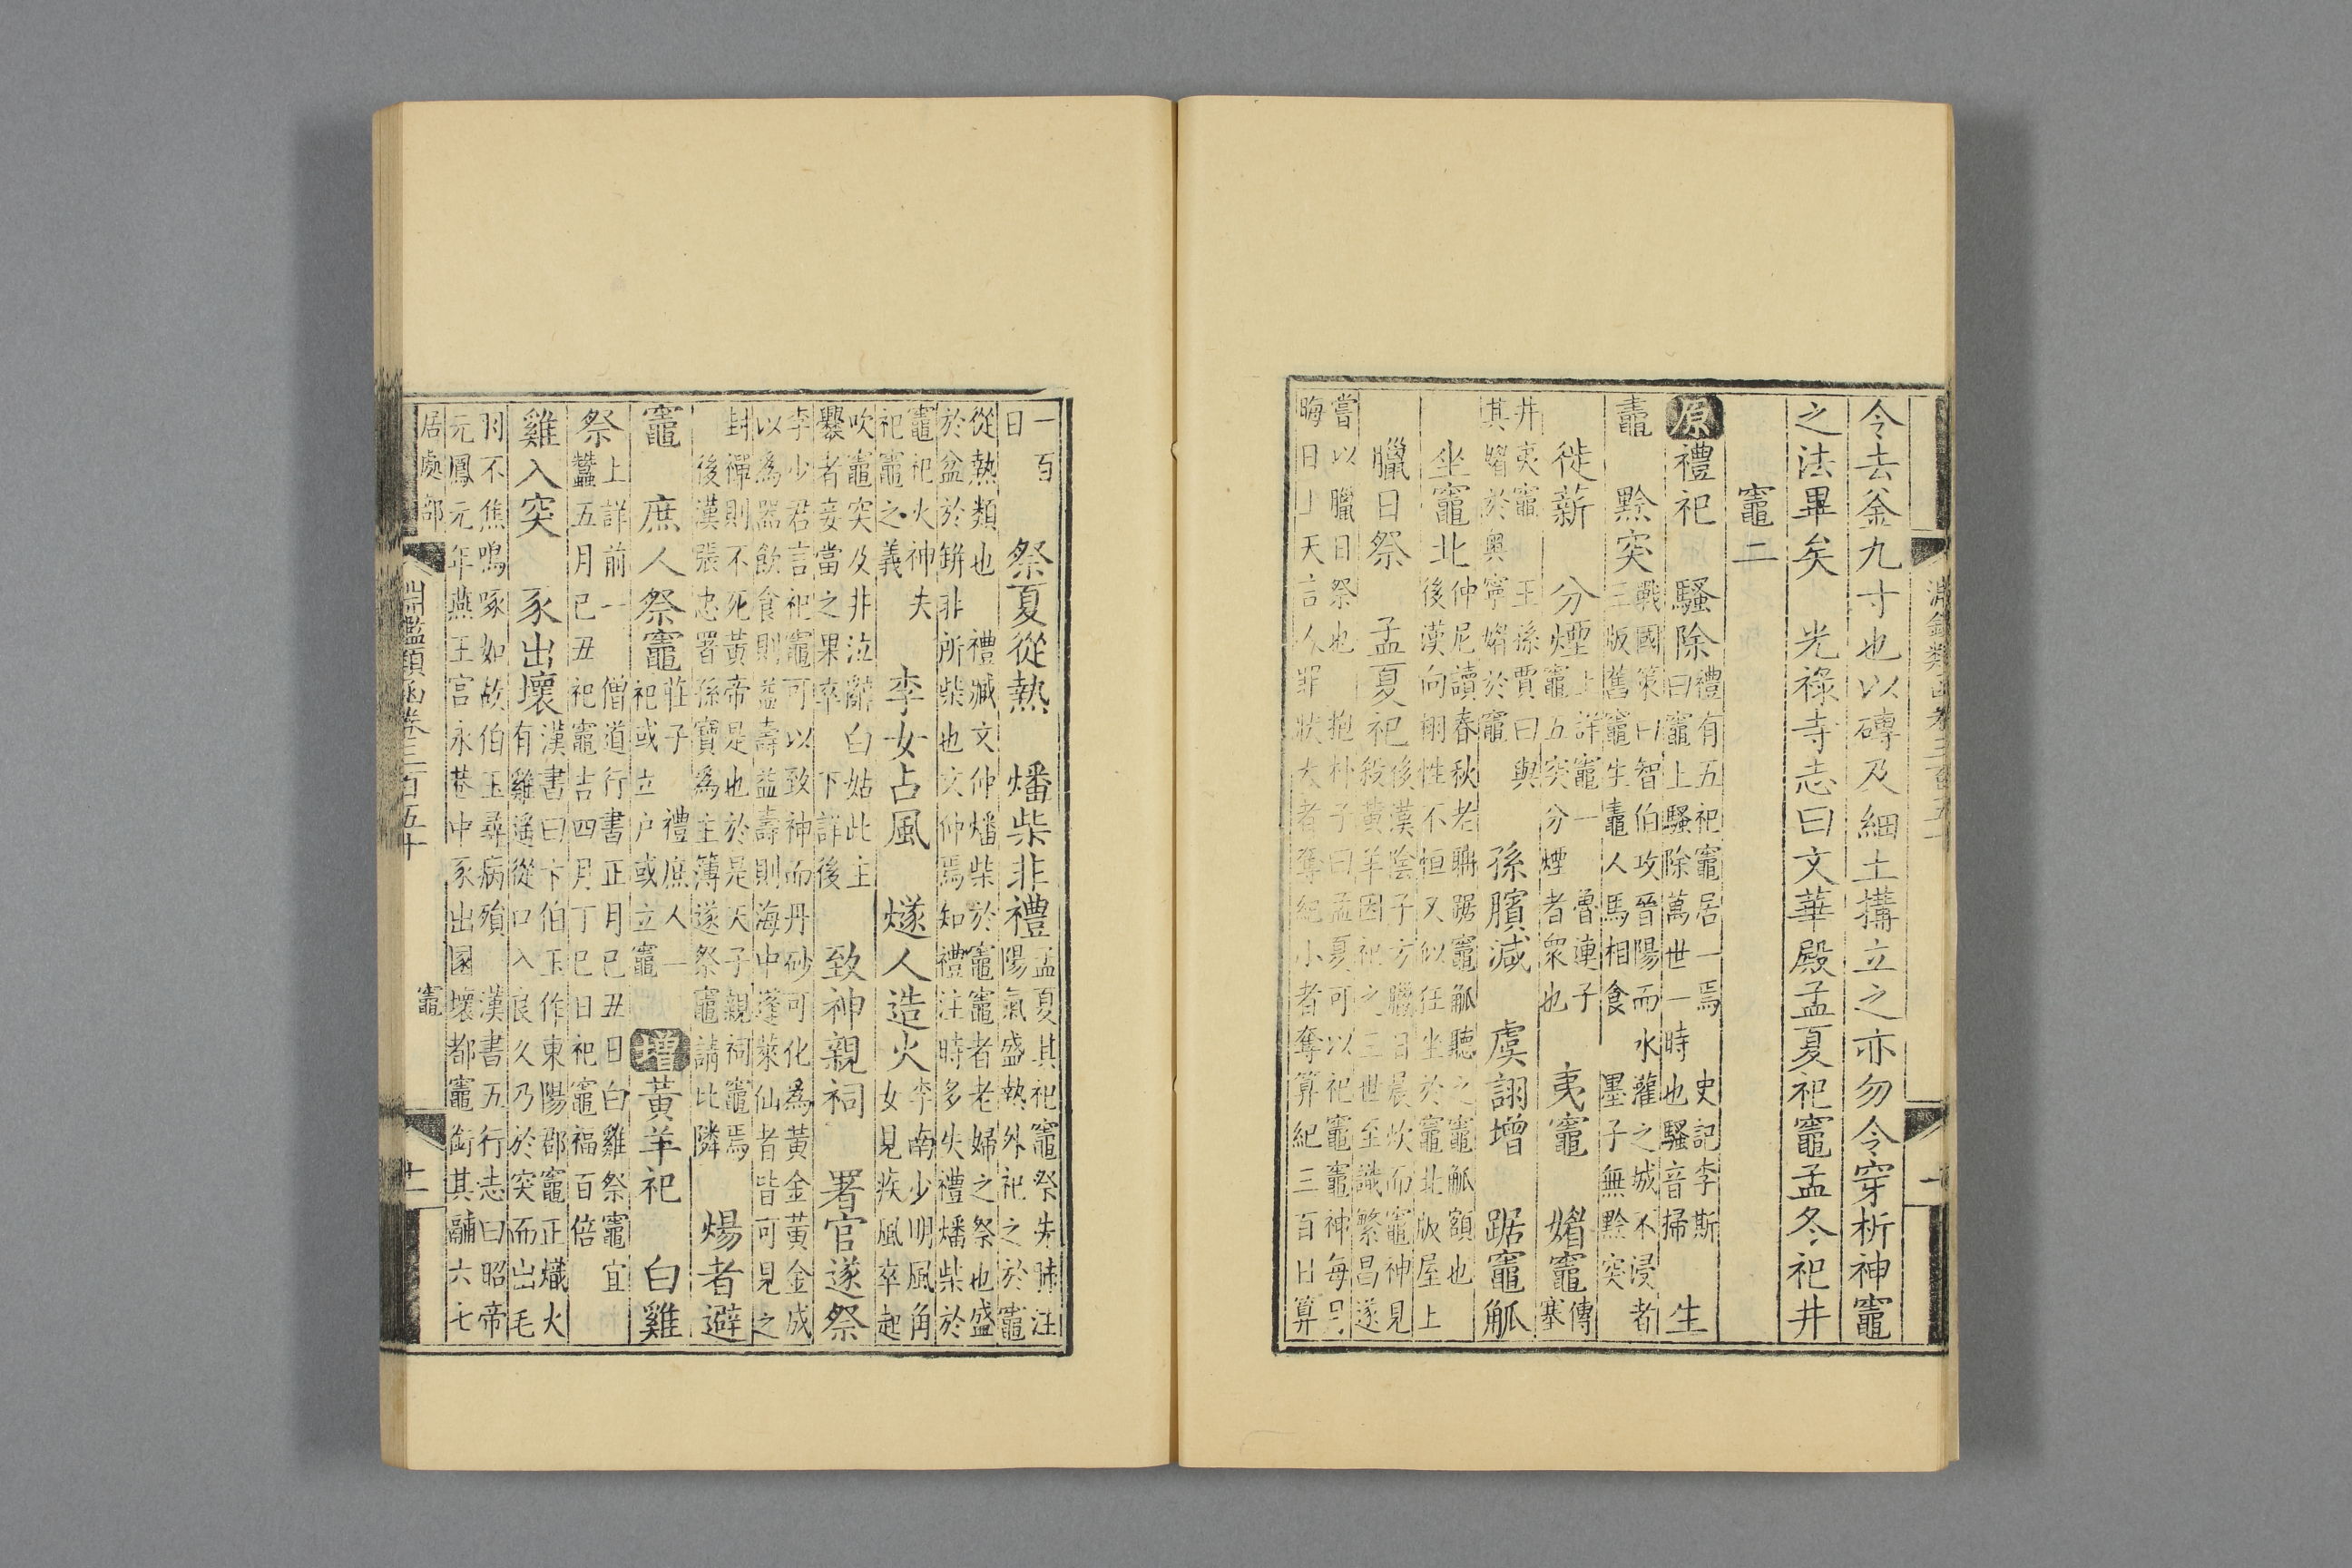 令去釜九寸也以磚及細土搆立之亦勿令穿析神竈
之法畢矣　光祿寺志曰文華殿孟夏祀竈孟冬祀井
竈二
原禮祀　騷除
禮有五祀竈居一焉　史記李斯
曰竈上騷除萬世一時也騷音掃
生
鼃　黔突
戰國策曰智伯攻晉陽而水灌之城不浸者
三版舊竈生鼃人馬相食　墨子無黔突
徙薪　分煙
上詳竈一　魯連子
竈五突分煙者衆也
夷竈　媚竈
傳
塞
井夷竈　王孫賈曰與
其媚於奧寧媚於竈
孫臏減　虞詡增　踞竈觚
坐竈北
仲尼讀春秋老聃踞竈觚聽之竈觚額也
後漢向栩性不恒又似狂坐於竈北版屋上
臘日祭　孟夏祀
後漢陰子方臘日晨炊而竈神見
殺黃羊因祀之三世至識繁昌遂
嘗以臘日祭也　抱朴子曰孟夏可以祀竈竈神每月
晦日上天言人罪狀大者奪紀小者奪算紀三百日算
一百
日
祭夏從熱　燔柴非禮
孟夏其祀竈祭先肺注
陽氣盛熱外祀之於竈
從熱類也　禮臧文仲燔柴於竈竈者老婦之祭也盛
於盆於缾非所柴也文仲焉知禮注時多失禮燔柴於
竈祀火神夫
祀竈之義
李女占風　燧人造火
李南少明風角
女見疾風卒起
吹竈突及非泣辭白姑此主
爨者妾當之果卒　下詳後
致神親祠　署官遂祭
李少君言祀竈可以致神而丹砂可化為黃金黃金成
以為器飲食則益壽益壽則海中蓬萊仙者皆可見之
封禪則不死黃帝是也於是天子親祠竈焉
後漢張忠署孫寶為主簿遂祭竈請比隣
煬者避
竈　庶人祭竈
莊子　禮庶人一
祀或立户或立竈
增黃羊祀　白雞
祭
上詳前一　僧道行書正月己丑日白雞祭竈宜
蠶五月己丑祀竈吉四月丁巳日祀竈福百倍
雞入突　豕出壞
漢書曰卞伯玉作東陽郡竈正熾火
有雞遙從口入良久乃於突而出毛
羽不焦鳴啄如故伯玉尋病殞　漢書五行志曰昭帝
元鳳元年燕王宮永巷中豕出圂壞都竈銜其鬴六七
居處部　淵鑑類函卷三百五十　竈　十一